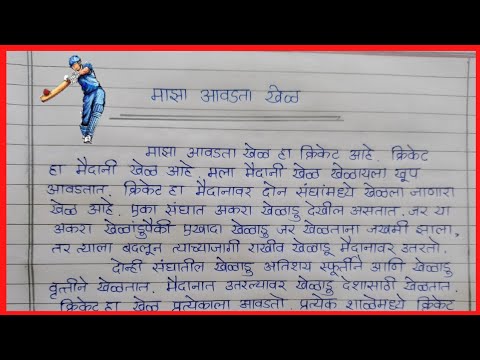 माझा आवडता खेळ
माझा आवडता खेळ हा क्रिकेट आहे. क्रिकेट
हा मैदानी खेळ आहे. मला मैदानी खेळ खेळायला खूप
आवडतात. क्रिकेट हा मैदानावर दोन संघांमध्ये खेळला जाणारा
खेळ आहे. एका संघात अकरा खेळाडू देखील असतात. जर या
अकरा खेळांडुपैकी एखादा खेळाडू जर खेळताना जखमी झाला,
तर त्याला बदलून त्याच्याजागी राखीव खेळाडू मैदानावर उतरतो.
दोन्ही संघातील खेळाडू अतिशय स्फूर्तीने आणि खेळाडु
वृत्तीने खेळतात. मैदानात उतरल्यावर खेळाडू देशासाठी खेळतात.
क्रिकेट हा खेळ प्रत्येकाला आवडतो. प्रत्येक शाळेमध्ये क्रिकेट